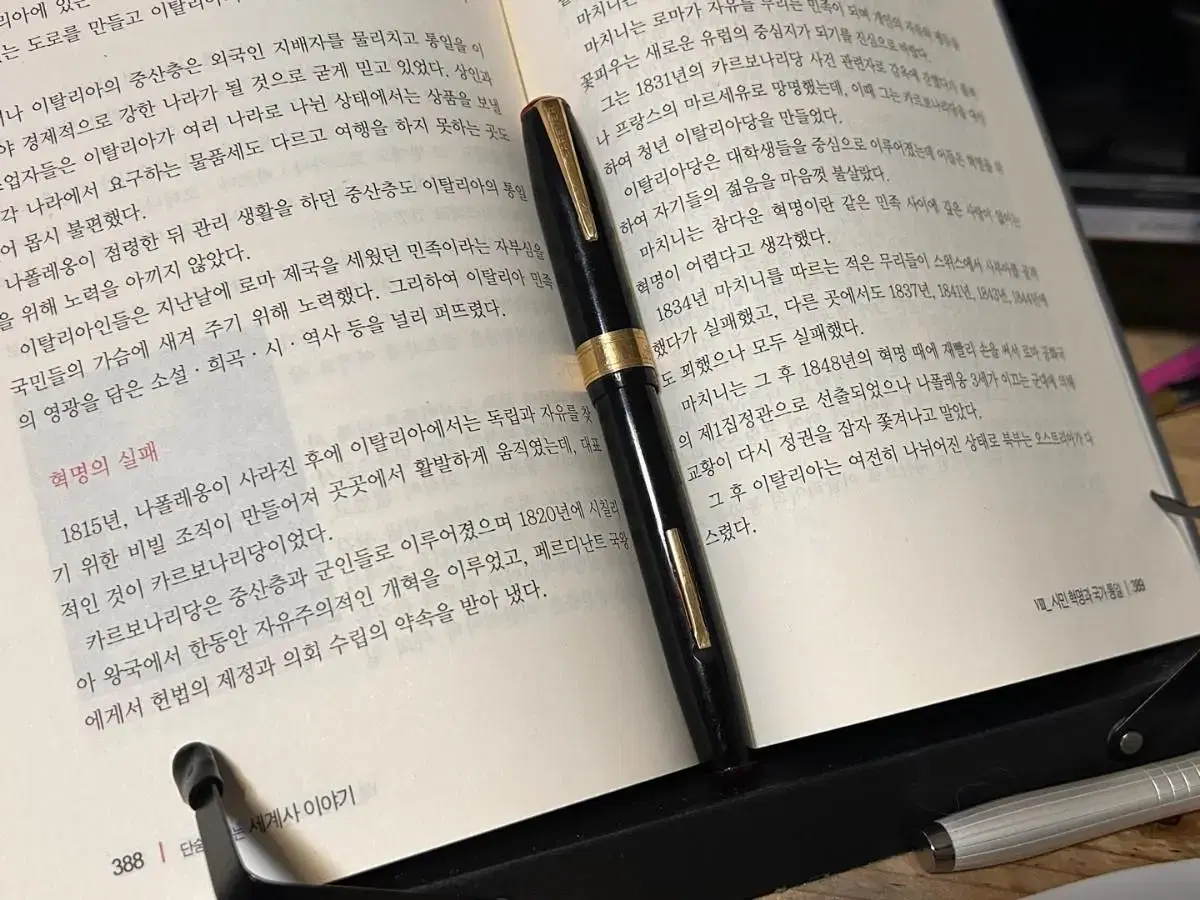 리아에 있는
는 도로를 만들고 이탈리아
이탈리아의 중산층은 외국인 지배자를 물리치고 통일을 이
야 경제적으로 강한 나라가 될 것으로 굳게 믿고 있었다. 상인과
업자들은 이탈리아가 여러 나라로 나뉜 상태에서는 상품을 보낼
각 나라에서 요구하는 물품세도 다르고 여행을 하지 못하는 곳도
어 몹시 불편했다.
나폴레옹이 점령한 뒤 관리 생활을 하던 중산층도 이탈리아의 통일
을 위해 노력을 아끼지 않았다.
이탈리아인들은 지난날에 로마 제국을 세웠던 민족이라는 자부심을
국민들의 가슴에 새겨 주기 위해 노력했다. 그리하여 이탈리아 민족
의 영광을 담은 소설 · 희곡 · 시 · 역사 등을 널리 퍼뜨렸다.
혁명의 실패
1815년, 나폴레옹이 사라진 후에 이탈리아에서는 독립과 자유를 찾
기 위한 비밀 조직이 만들어져 곳곳에서 활발하게 움직였는데, 대표
적인 것이 카르보나리당이었다.
카르보나리당은 중산층과 군인들로 이루어졌으며 1820년에 시칠리
아 왕국에서 한동안 자유주의적인 개혁을 이루었고, 페르디난트 국왕
에게서 헌법의 제정과 의회 수립의 약속을 받아 냈다.
388
세계사 이야기
마치니는 로마가 자유를 누리는 민족이 되며 개인의 자유와 평등을
꽃피우는 새로운 유럽의 중심지가 되기를 진심으로 바랐다.
그는 1831년의 카르보나리당 사건 관련자로 감옥에 갇혔다가 풀려
나 프랑스의 마르세유로 망명했는데, 이때 그는 카르보나리당을 대신
하여 청년 이탈리아당을 만들었다.
이탈리아당은 대학생들을 중심으로 이루어졌는데 이들은 혁명을 위
하여 자기들의 젊음을 마음껏 불살랐다.
마치니는 참다운 혁명이란 같은 민족 사이에 깊은 사랑이 없이는
혁명이 어렵다고 생각했다.
1834년 마치니를 따르는 적은 무리들이 스위스에서 사부아를 공격
했다가 실패했고, 다른 곳에서도 1837년, 1841년, 1843년, 1844년에
도 꾀했으나 모두 실패했다.
마치니는 그 후 1848년의 혁명 때에 재빨리 손을 써서 로마 공화국
의 제1집정관으로 선출되었으나 나폴레옹 3세가 이끄는 군대에 의해
교황이 다시 정권을 잡자 쫓겨나고 말았다.
그 후 이탈리아는 여전히 나뉘어진 상태로 북부는 오스트리아가 다
스렸다.
VIII_ 시민 혁명과 국가 통일 | 389